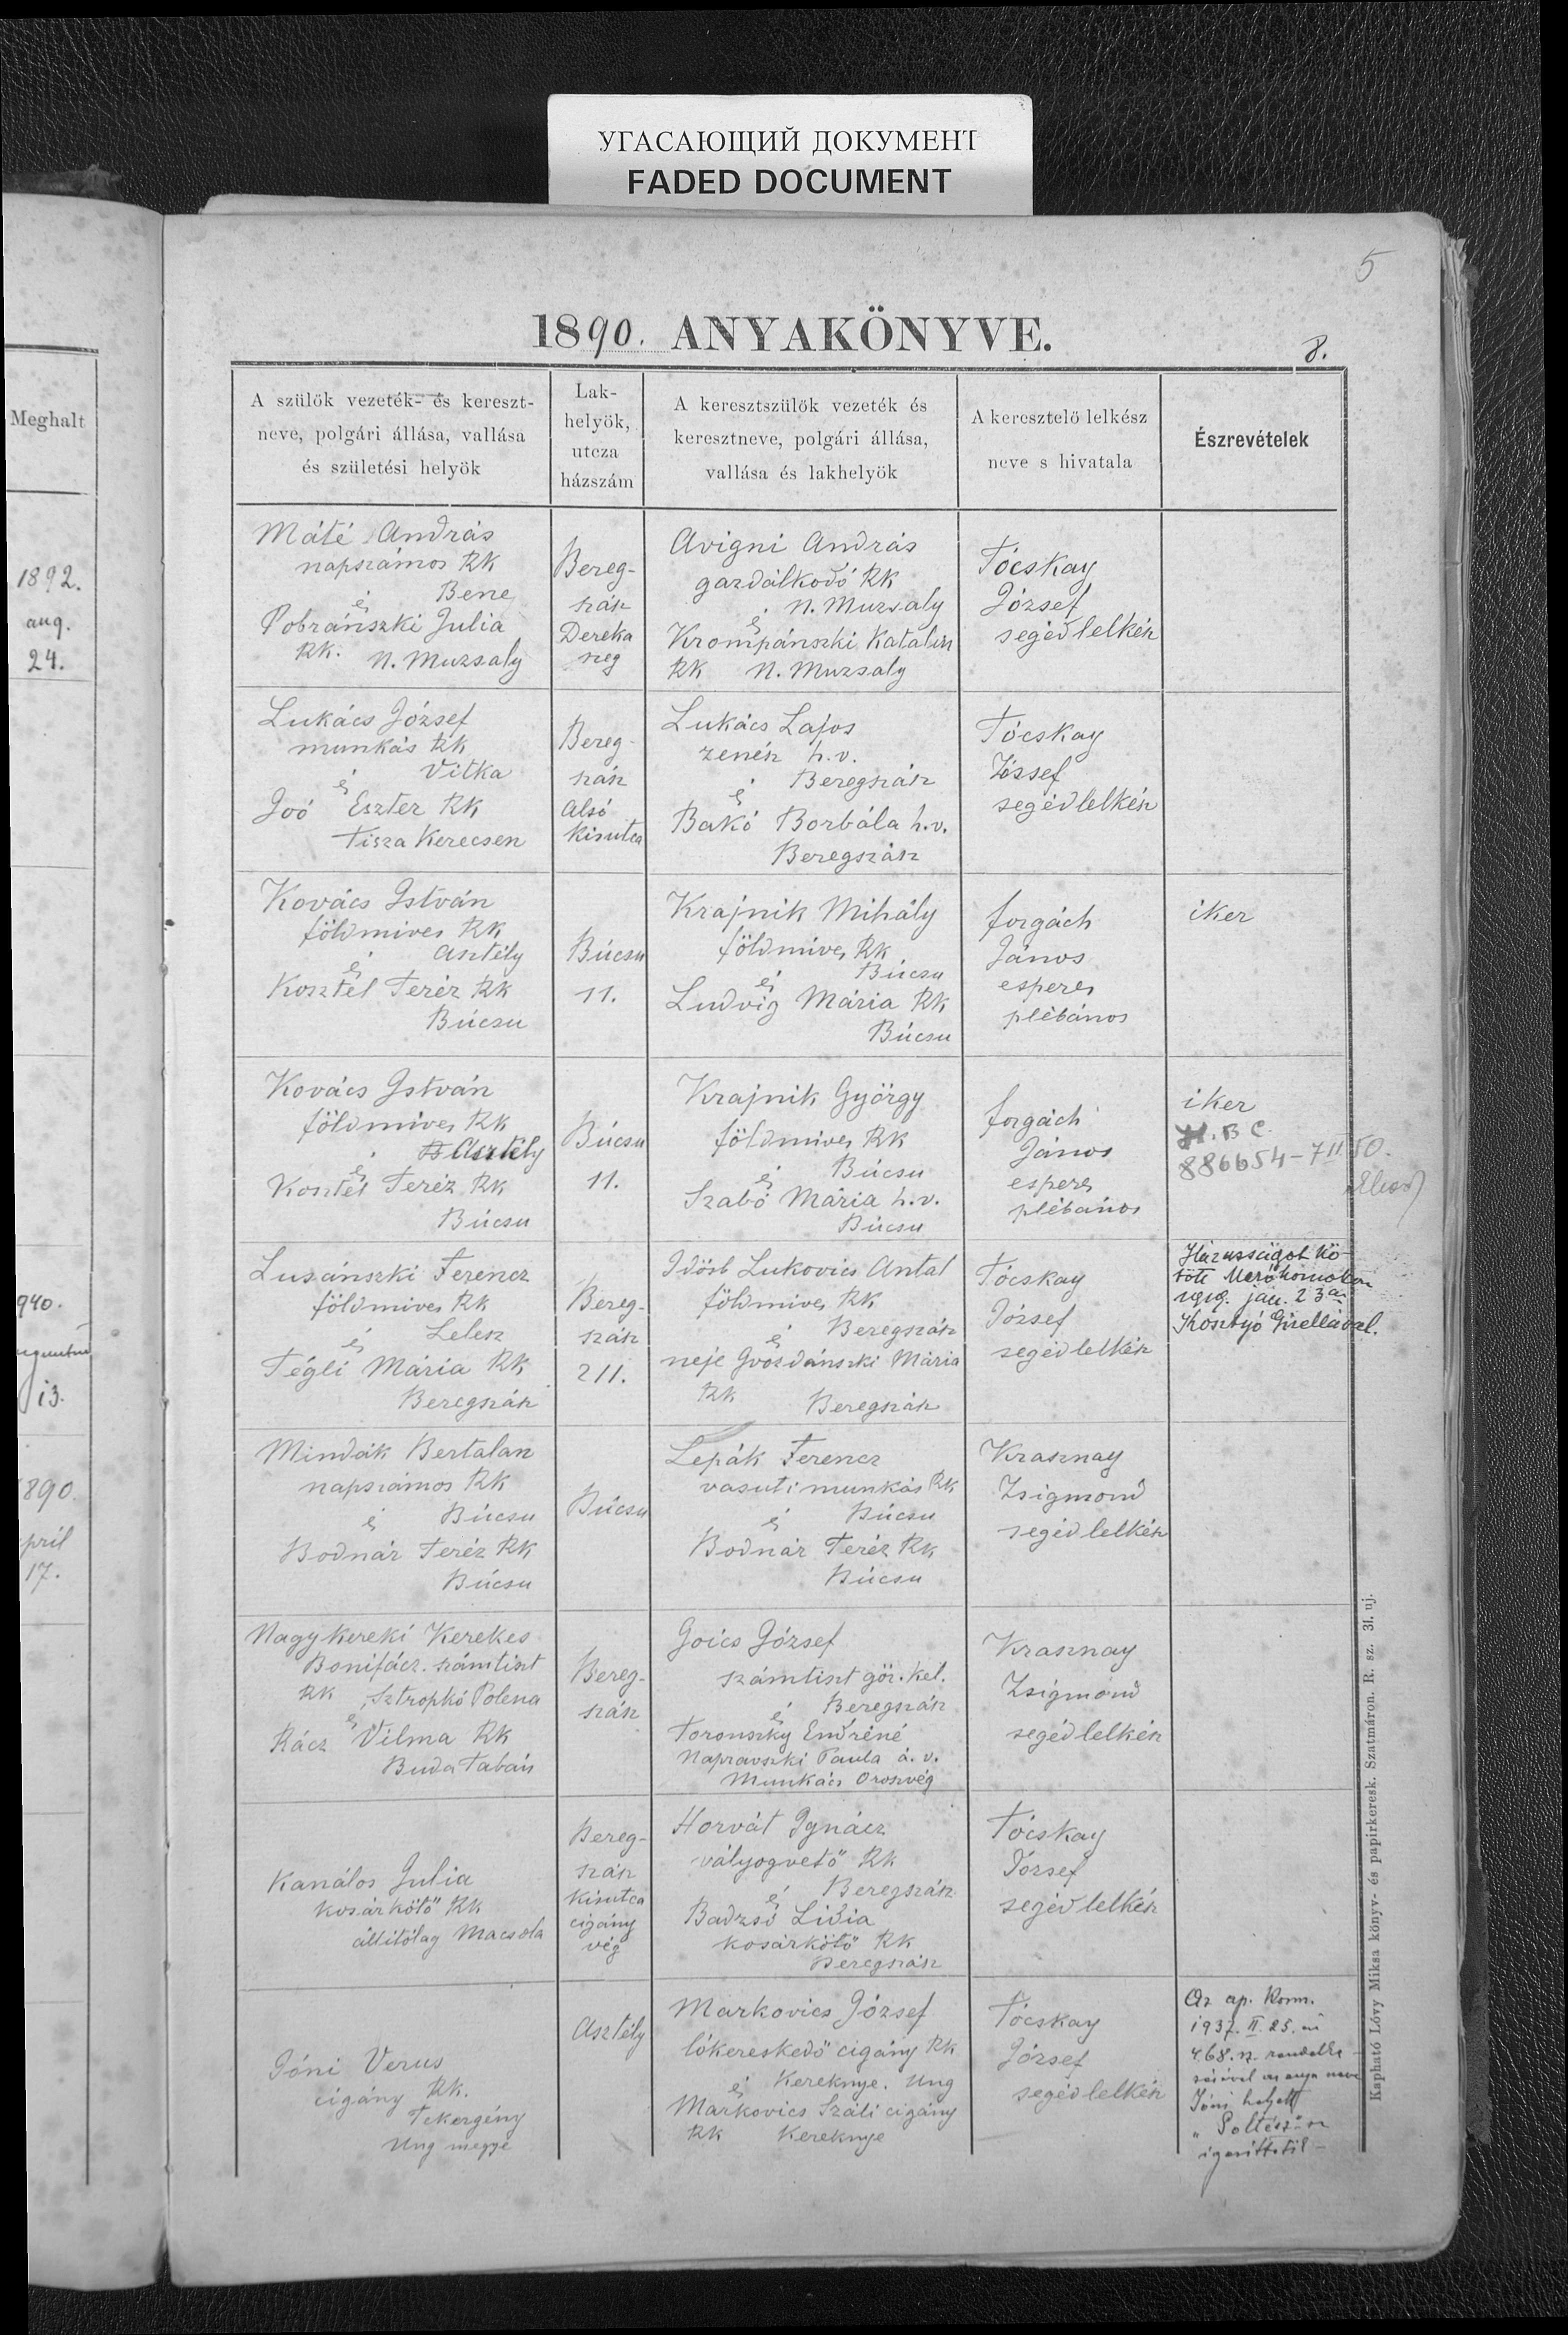 УГАСАЮЩИЙ ДОКУМЕНТ
FADED DOCUMENT
5
1890. ANYAKÖNYVE.
8.
Meghalt
1892.
aug.
24.
940.
13.
890.
pril
17.
A szülök vezeték- és kereszt-
neve, polgári állása, vallása
és születési helyök
Lak-
helyök,
utcza
házszám
A keresztszülök vezeték és
keresztneve, polgári állása,
vallása és lakhelyök
A keresztelö lelkész
neve s hivatala
Észrevételek
Máté András
napszámos RK
Bene
és
Pobránszki Julia
RK. N. Muzsaly
Bereg-
szász
Dereka
szeg
Avigni András
gazdálkodó RK
N. Muzsaly
és
Krompánszki Katalin
RK N. Muzsaly
Tócskay
József
segédlelkész
Lukács József
munkás RK
Vitka
és
Joó Eszter RK
Tisza Kerecsen
Bereg-
szász
Alsó
Kisutca
Lukács Lajos
zenész h.v.
Beregszász
és
Bakó Borbála h.v.
Beregszász
Tócskay
József
segédlelkész
Kovács István
földmives RK
Asztély
és
Kosztél Teréz RK
Búcsu
Búcsu
11.
Krajnik Mihály
földmives RK
Búcsu
és
Ludvig Mária RK
Búcsu
forgách
János
esperes
plébános
iker
Kovács István
földmives RK
Asztély
és
Kosztél Teréz RK
Búcsu
Búcsu
11.
Krajnik György
földmives RK
Búcsu
és
Szabó Mária h.v.
Búcsu
forgách
János
esperes
plébános
iker
H. B C.
886654-7 II 50.
Lusánszki Ferencz
földmives RK
Lelesz
és
Tégli Mária RK
Beregszász
Bereg-
szász
211.
Idősb Lukovics Antal
földmives RK
Beregszász
és
neje Gvosdánszki Mária
RK Beregszász
Tócskay
József
segédlelkész
Házasságot kö-
tött Mezőhomokon
jan. 23án
Kosztyó Gizellával.
Mindák Bertalan
napszámos RK
Búcsu
és
Bodnár Teréz RK
Búcsu
Búcsu
Lepák Ferencz
vasuti munkás RK
Búcsu
és
Bodnár Teréz RK
Búcsu
Krasznay
Zsigmond
segédlelkész
Nagykereki Kerekes
Bonifácz számtiszt
RK Sztropkó Polena
és
Rácz Vilma RK
Buda Tabán
Bereg-
szász
Goics József
számtiszt gör. kel.
Beregszász
és
Toronszky Endréné
Napravszki Paula á. v.
Munkács Oroszvég
Krasznay
Zsigmond
segédlelkész
Kanálos Julia
kosárkötő RK
állitólag Macsola
Bereg-
szász
Kisutca
cigány
vég
Horvát Ignácz
vályogvető RK
Beregszász
és
Badzsó Lidia
kosárkötő RK
Beregszász
Tócskay
József
segédlelkész
Jóni Verus
cigány RK.
Tekergény
Ung megye
Asztély
Markovics József
lókereskedő cigány RK
Kereknye. Ung
és
Markovics Száli cigány
RK Kereknye
Tócskay
József
segédlelkész
Az ap. Korm.
1937. II. 25.
468. sz. rendelke-
zésével az anya neve
Jóni helyett
Kapható Lővy Miksa könyv- és papirkeresk. Szatmáron. R. sz. 31. uj.